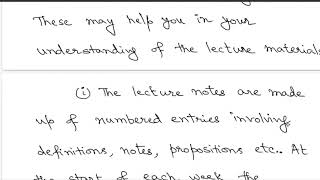 These may help you in your
understanding of the lecture materials
(i) The lecture notes are made
up of numbered entries involving
definitions, notes, propositions etc.. At
the start of each week the